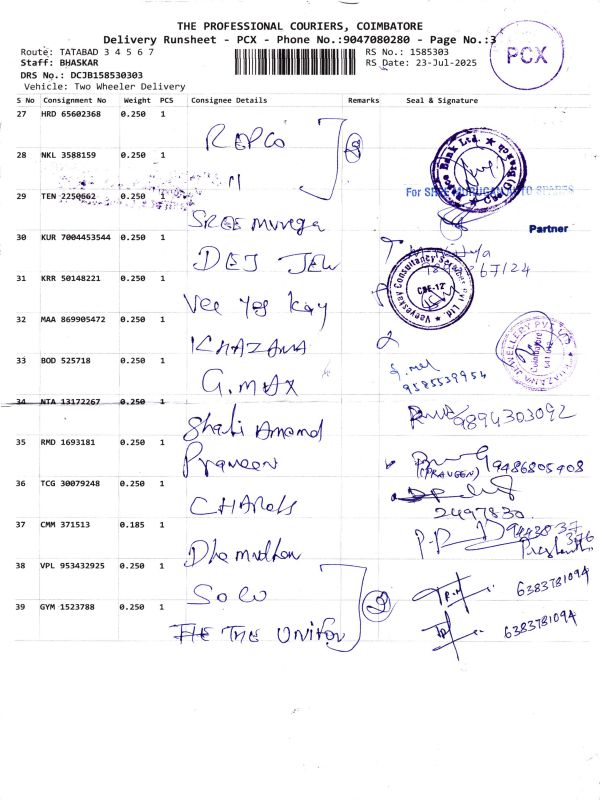 THE PROFESSIONAL COURIERS, COIMBATORE
Delivery Runsheet - PCX - Phone No.:9047080280 - Page No.:3
Route: TATABAD 3 4 5 6 7
RS No.: 1585303
Staff: BHASKAR
RS Date: 23-Jul-2025
DRS No.: DCJB158530303
Vehicle: Two Wheeler Delivery
PCX
S No Consignment No Weight PCS Consignee Details Remarks Seal & Signature
27 HRD 65602368 0.250 1
REPCO
28 NKL 3588159 0.250 1
"
29 TEN 2250662 0.250 1
For SREE MURUGAN AUTO SPARES
Partner
SREE Muruga
30 KUR 7004453544 0.250 1
DEJ JEW
31 KRR 50148221 0.250 1
Veeyeskay Consultancy Services Pvt Ltd.
CBE-12
Vee Yes Kay
32 MAA 869905472 0.250 1
KHAZANA
33 BOD 525718 0.250 1
KHAZANA JEWELLERY PVT LTD
Coimbatore
641 012
G.MAX
9585539954
34 NTA 13172267 0.250 1
9894303092
Shakti Anand
35 RMD 1693181 0.250 1
Praveen
(PRAVEEN) 9486805908
36 TCG 30079248 0.250 1
CHAROLS
2497830
37 CMM 371513 0.185 1
Prashanth
38 VPL 953432925 0.250 1
Solo
6383781094
39 GYM 1523788 0.250 1
THE UNIFOU
6383781094